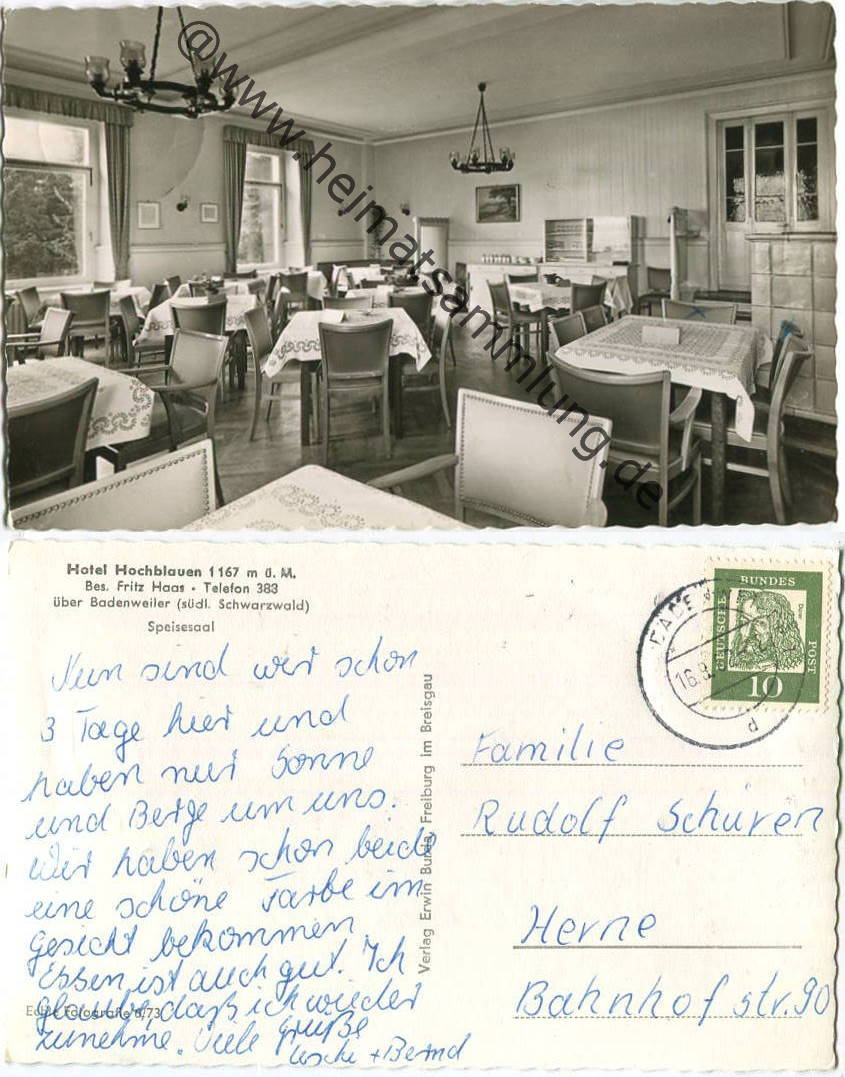 @www.heimatsammlung.de
Hotel Hochblauen 1167 m ü. M.
Bes. Fritz Haas • Telefon 383
über Badenweiler (südl. Schwarzwald)
Speisesaal
Nun sind wir schon
3 Tage hier und
haben nur Sonne
und Berge um uns.
Wir haben schon beide
eine schöne Farbe im
Gesicht bekommen.
Essen ist auch gut. Ich
glaube, daß ich wieder
zunehme. Viele Grüße
+ Bernd
Echte Fotografie 8/73
Verlag Erwin Burda, Freiburg im Breisgau
DEUTSCHE BUNDES POST
Dürer
10
BADENWEILER
16.8.
d
Familie
Rudolf Schüren
Herne
Bahnhofstr. 90